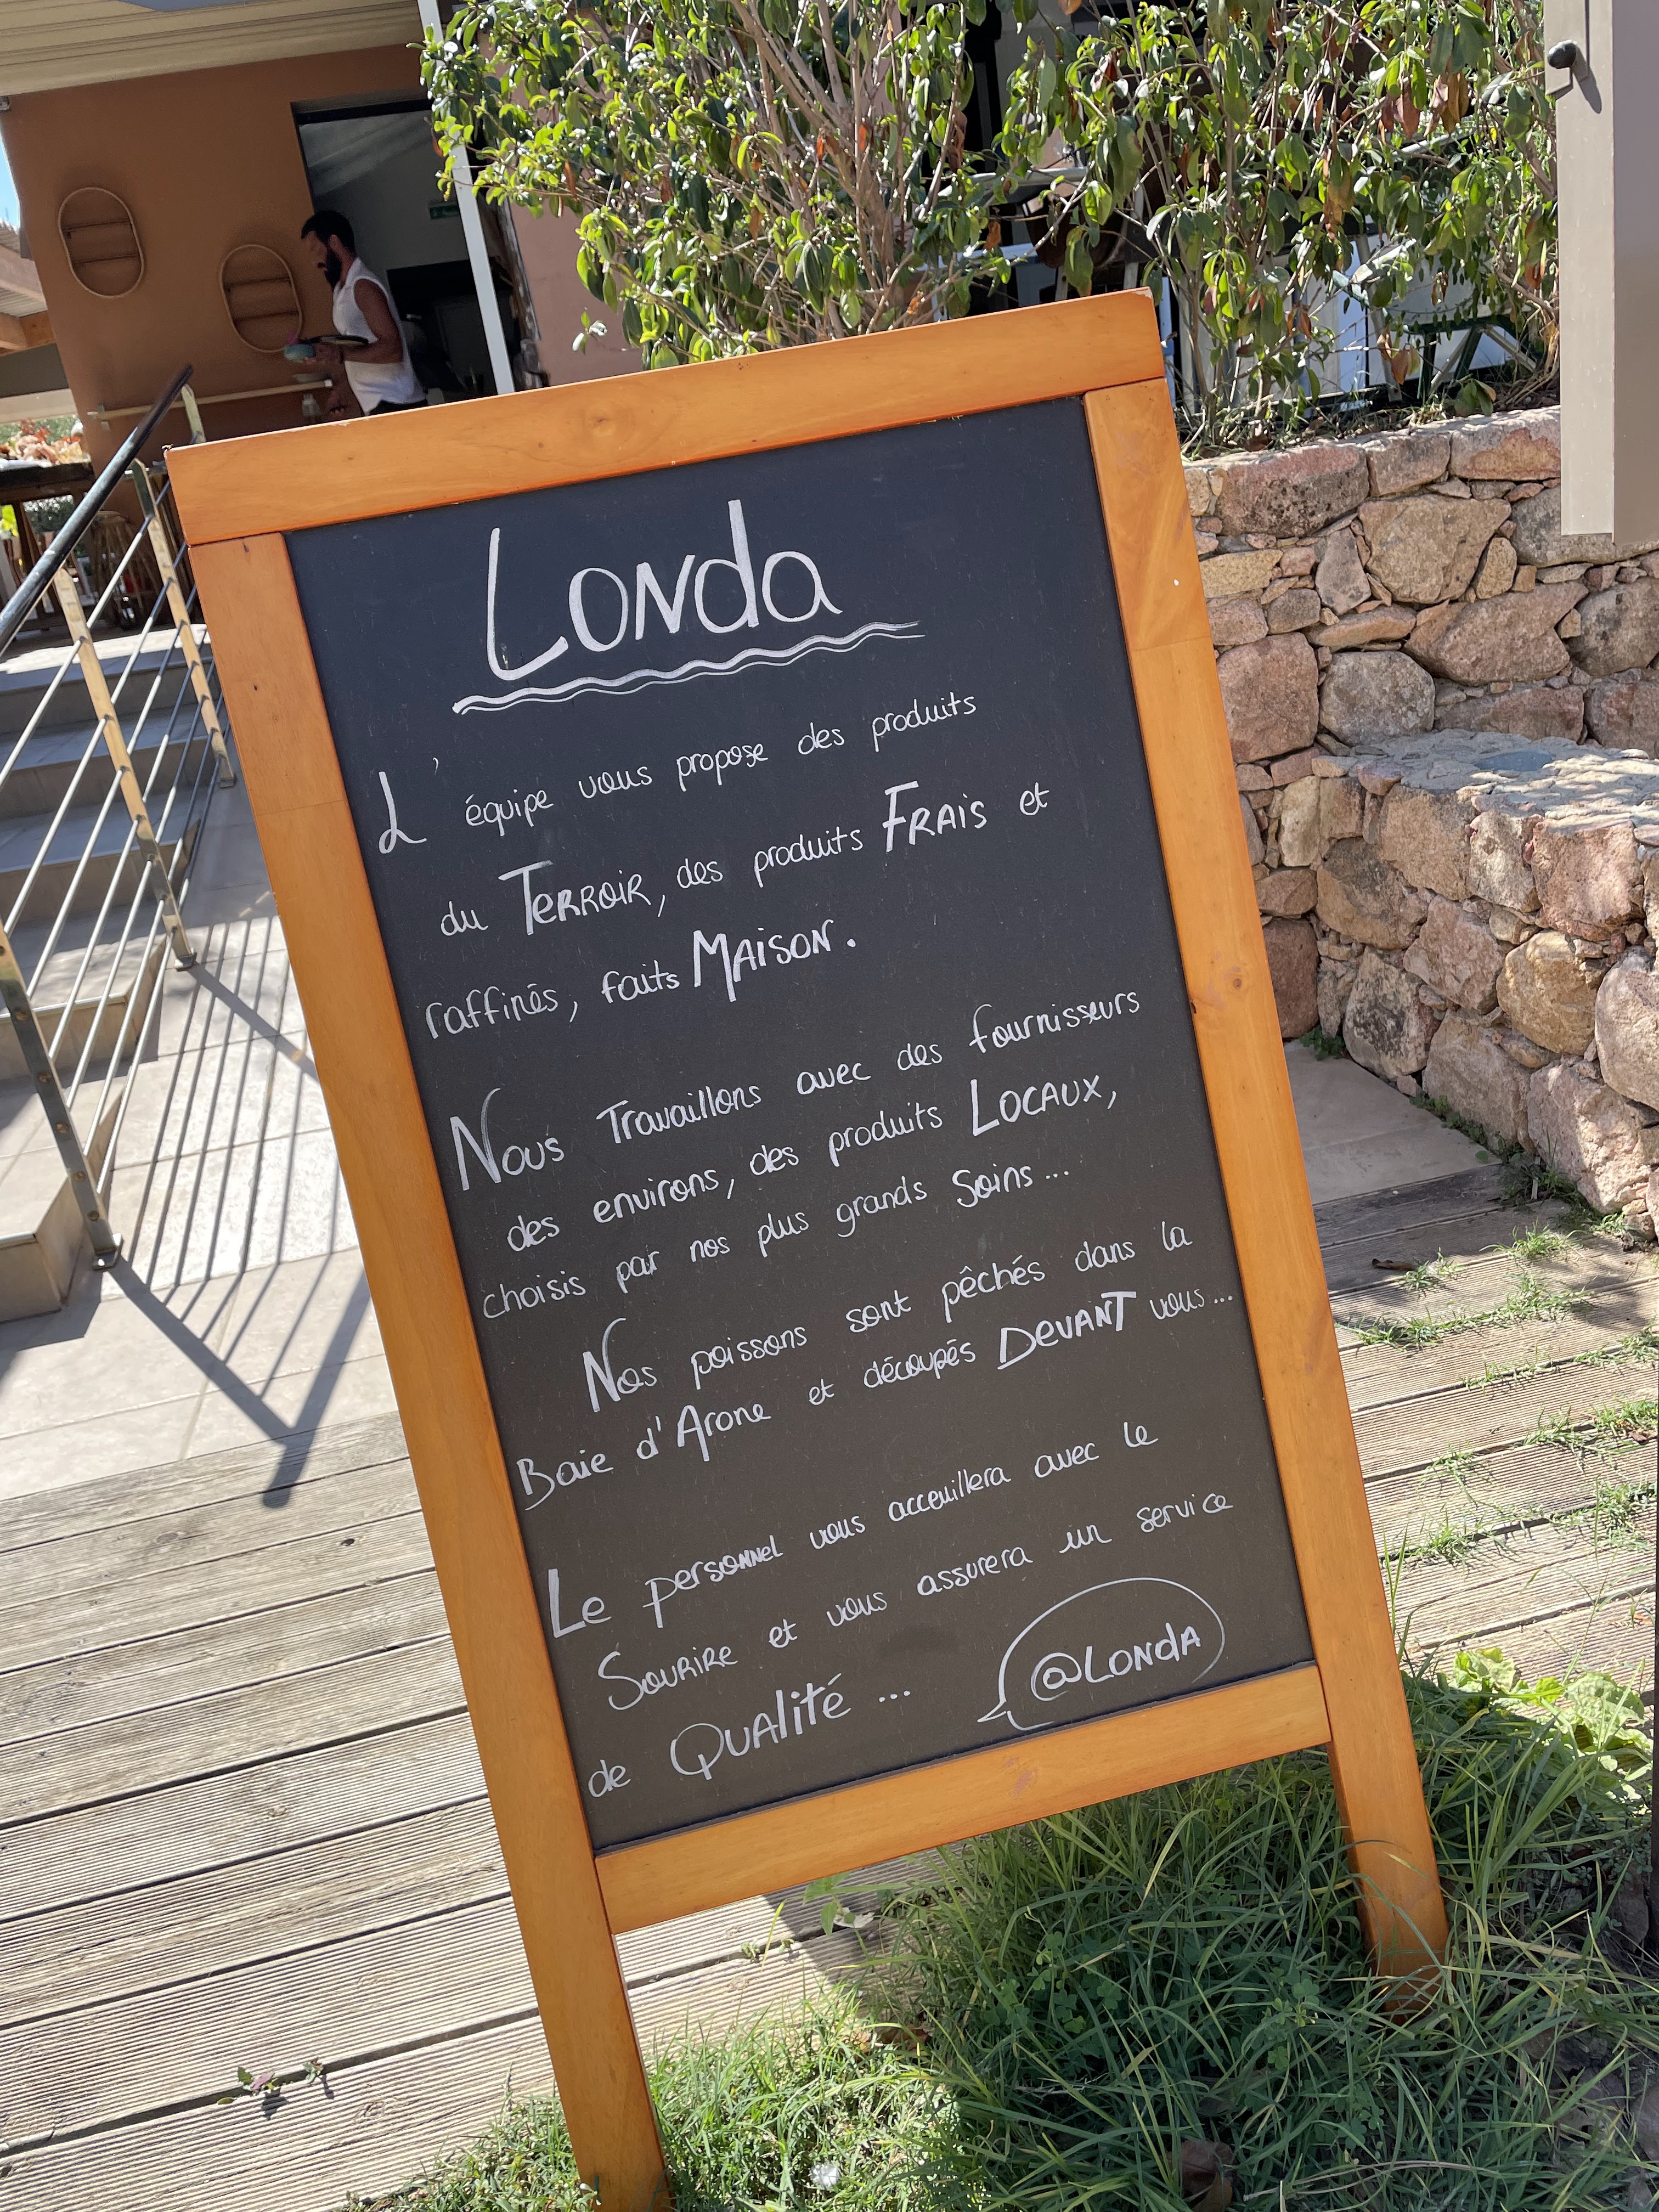 Londa
L'équipe vous propose des produits
du Terroir, des produits Frais et
raffinés, faits Maison.
Nous Travaillons avec des fournisseurs
des environs, des produits Locaux,
choisis par nos plus grands Soins...
Nos poissons sont pêchés dans la
Baie d'Arone et découpés DEVANT vous...
Le personnel vous acceuillera avec le
Sourire et vous assurera un service
de Qualité ...
@Londa